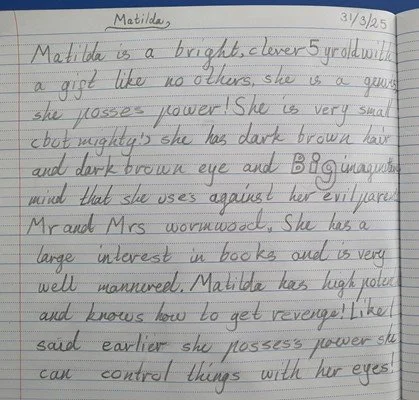 Matilda,
31/3/25
Matilda is a bright, clever 5 yr old with
a gift like no others, she is a genius
she posses power! She is very small
(but mighty) she has dark brown hair
and dark brown eye and Big imagination
mind that she uses against her evil parents
Mr and Mrs wormwood. She has a
large interest in books and is very
well mannered. Matilda has high potenti
and knows how to get revenge! Like I
said earlier she possess power she
can control things with her eyes!